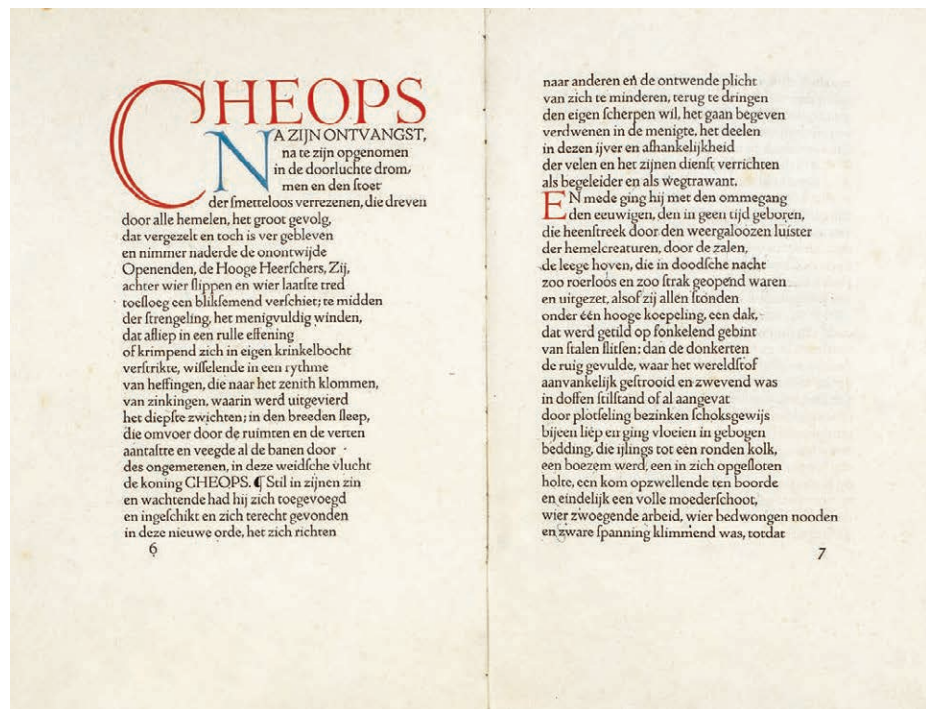 CHEOPS
NA ZIJN ONTVANGST,
na te zijn opgenomen
in de doorluchte drom,
men en den ſtoet
der ſmetteloos verrezenen, die dreven
door alle hemelen, het groot gevolg,
dat vergezelt en toch is ver gebleven
en nimmer naderde de onontwijde
Openenden, de Hooge Heerſchers, Zij,
achter wier ſlippen en wier laatſte tred
toeſloeg een blikſemend verſchiet; te midden
der ſtrengeling, het menigvuldig winden,
dat afliep in een rulle effening
of krimpend zich in eigen krinkelbocht
verſtrikte, wiſſelende in een rythme
van heffingen, die naar het zenith klommen,
van zinkingen, waarin werd uitgevierd
het diepſte zwichten; in den breeden ſleep,
die omvoer door de ruimten en de verten
aantaſtte en veegde al de banen door
des ongemetenen, in deze weidſche vlucht
de koning CHEOPS. ¶ Stil in zijnen zin
en wachtende had hij zich toegevoegd
en ingeſchikt en zich terecht gevonden
in deze nieuwe orde, het zich richten
6
naar anderen en de ontwende plicht
van zich te minderen, terug te dringen
den eigen ſcherpen wil, het gaan begeven
verdwenen in de menigte, het deelen
in dezen ijver en afhankelijkheid
der velen en het zijnen dienſt verrichten
als begeleider en als wegtrawant.
EN mede ging hij met den ommegang
den eeuwigen, den in geen tijd geboren,
die heenſtreek door den weergaloozen luister
der hemelcreaturen, door de zalen,
de leege hoven, die in doodſche nacht
zoo roerloos en zoo ſtrak geopend waren
en uitgezet, alsof zij allen ſtonden
onder één hooge koepeling, een dak,
dat werd getild op fonkelend gebint
van ſtalen flitſen: dan de donkerten
de ruig gevulde, waar het wereldſtof
aanvankelijk geſtrooid en zwevend was
in doffen ſtilſtand of al aangevat
door plotſeling bezinken ſchoksgewijs
bijeen liep en ging vloeien in gebogen
bedding, die ijlings tot een ronden kolk,
een boezem werd, een in zich opgeſloten
holte, een kom opzwellende ten boorde
en eindelijk een volle moederſchoot,
wier zwoegende arbeid, wier bedwongen nooden
en zware ſpanning klimmend was, totdat
7